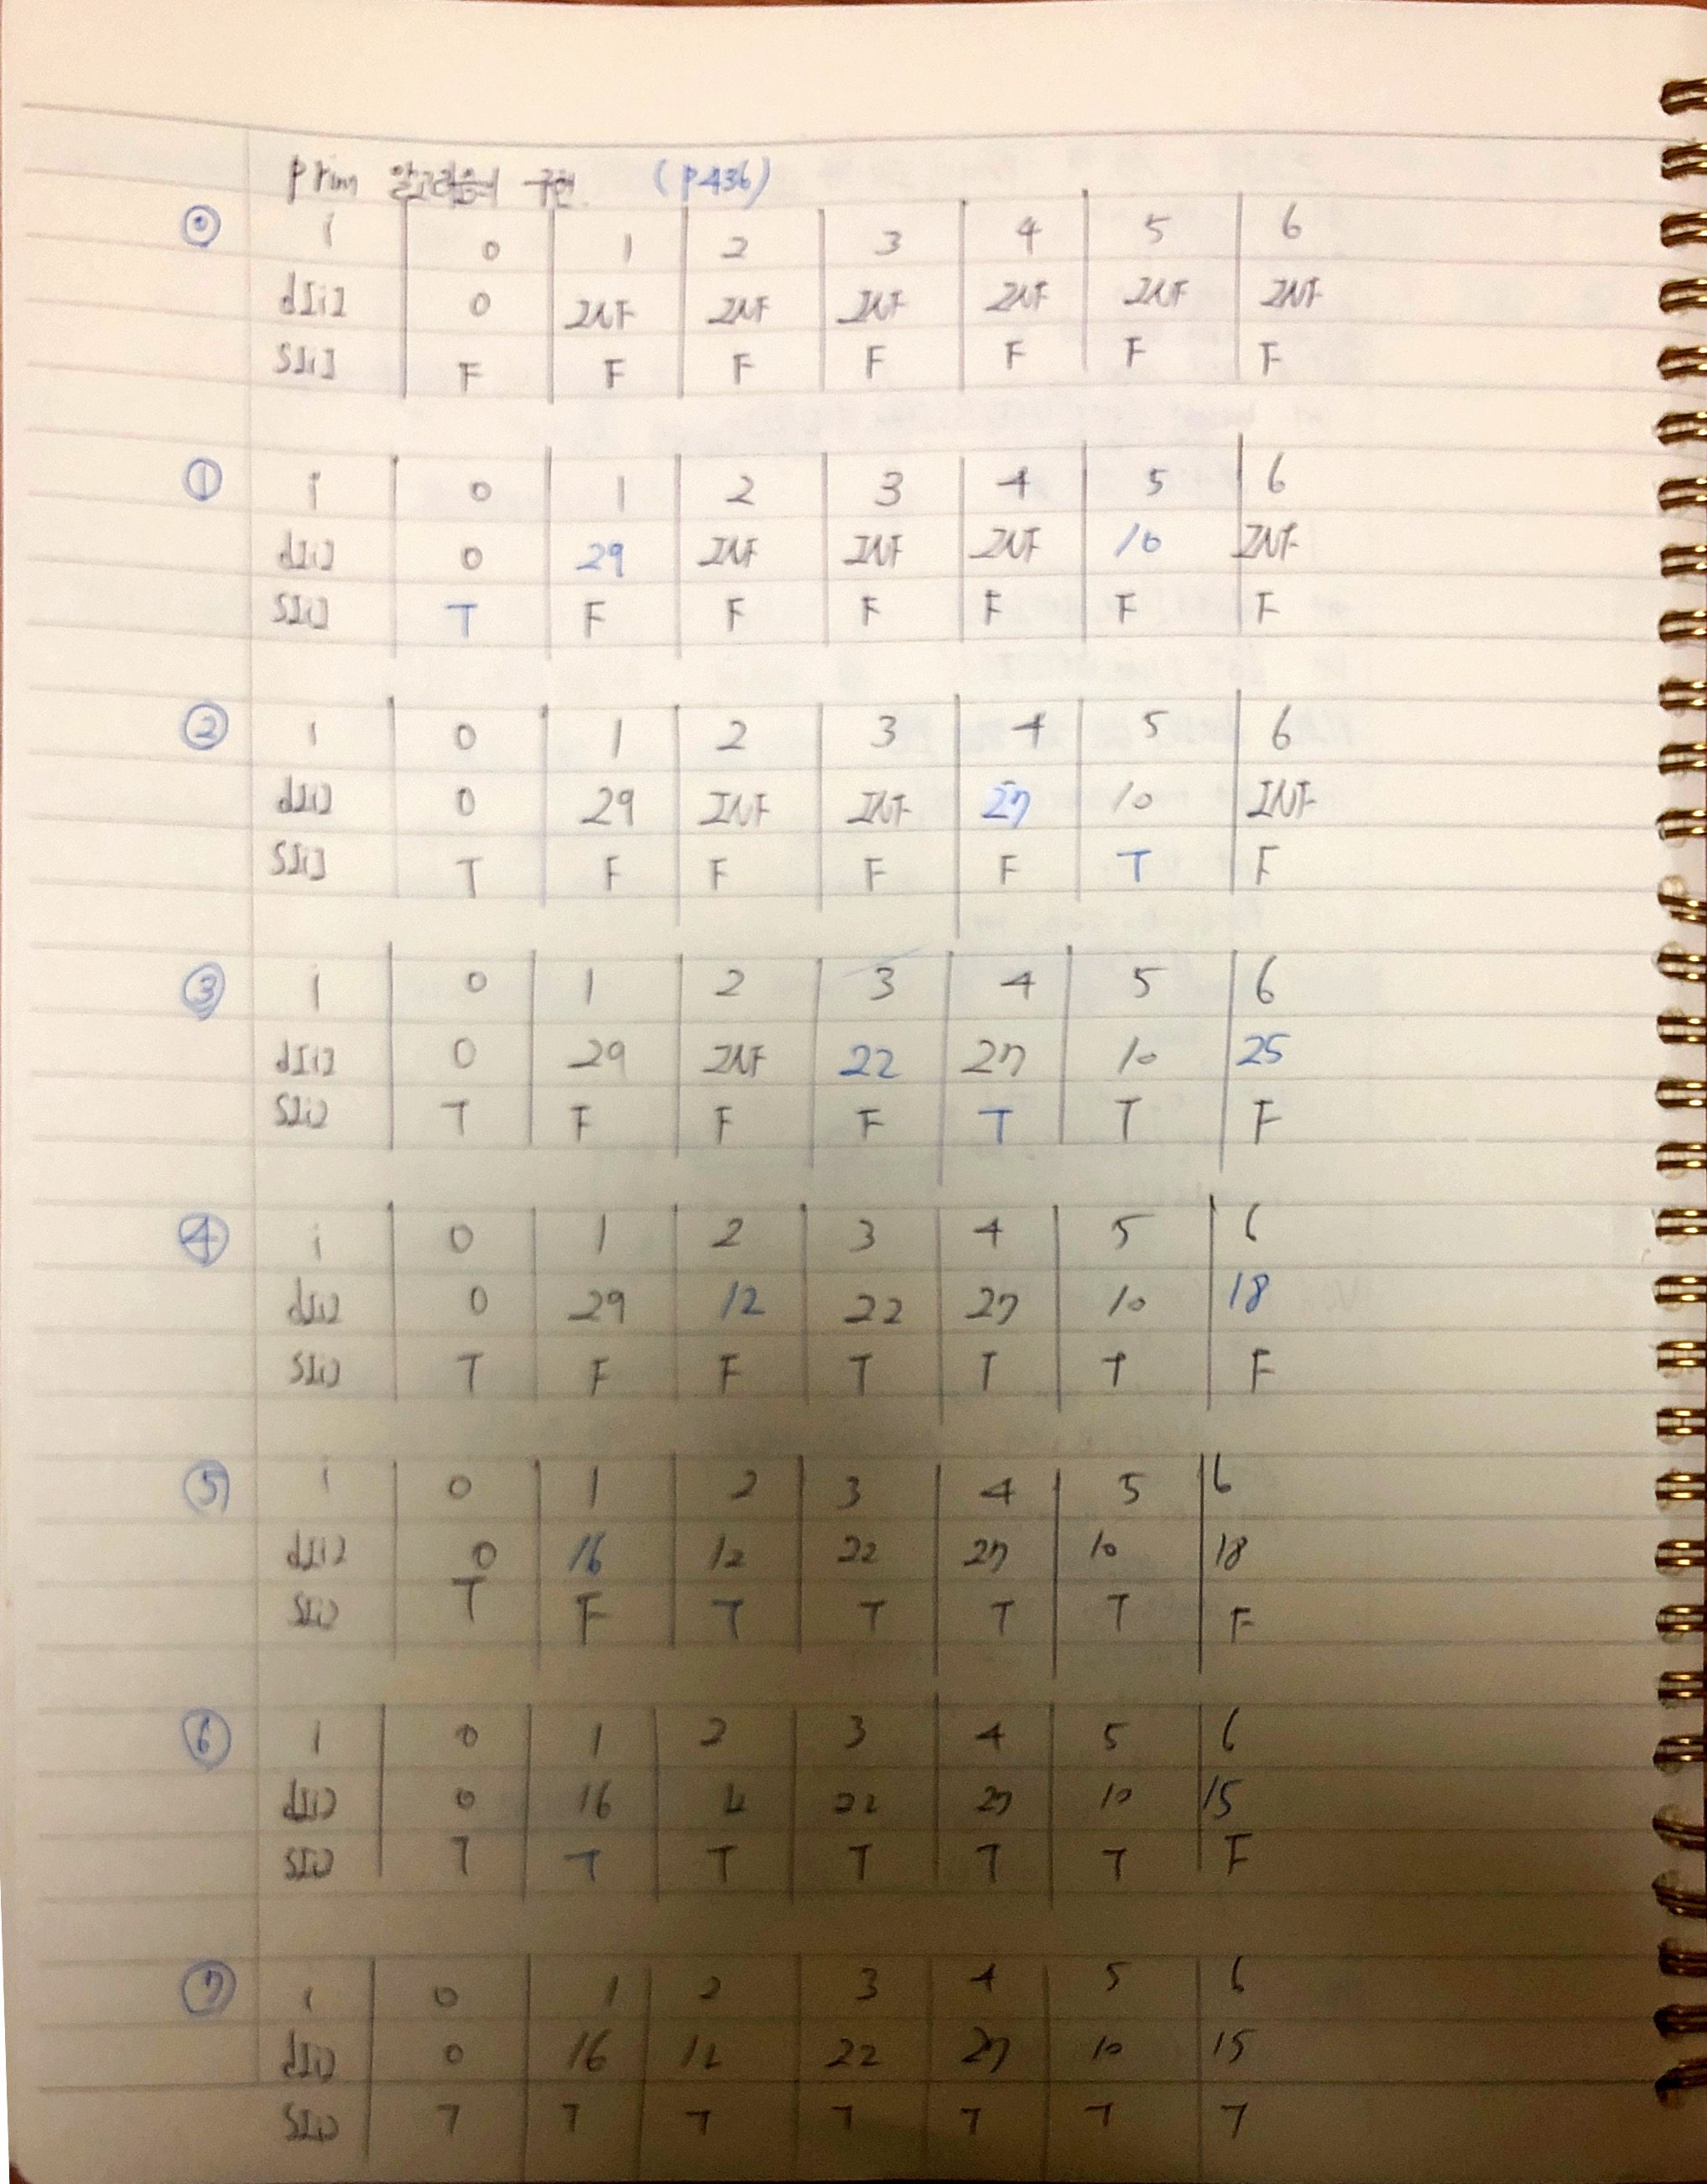 prim 알고리즘의 구현. (p436)
⓪ i 0 1 2 3 4 5 6
d[i] 0 INF INF INF INF INF INF
S[i] F F F F F F F
① i 0 1 2 3 4 5 6
d[i] 0 29 INF INF INF 10 INF
S[i] T F F F F F F
② i 0 1 2 3 4 5 6
d[i] 0 29 INF INF 27 10 INF
S[i] T F F F F T F
③ i 0 1 2 3 4 5 6
d[i] 0 29 INF 22 27 10 25
S[i] T F F F T T F
④ i 0 1 2 3 4 5 6
d[i] 0 29 12 22 27 10 18
S[i] T F F T T T F
⑤ i 0 1 2 3 4 5 6
d[i] 0 16 12 22 27 10 18
S[i] T F T T T T F
⑥ i 0 1 2 3 4 5 6
d[i] 0 16 12 22 27 10 15
S[i] T T T T T T F
⑦ i 0 1 2 3 4 5 6
d[i] 0 16 12 22 27 10 15
S[i] T T T T T T T